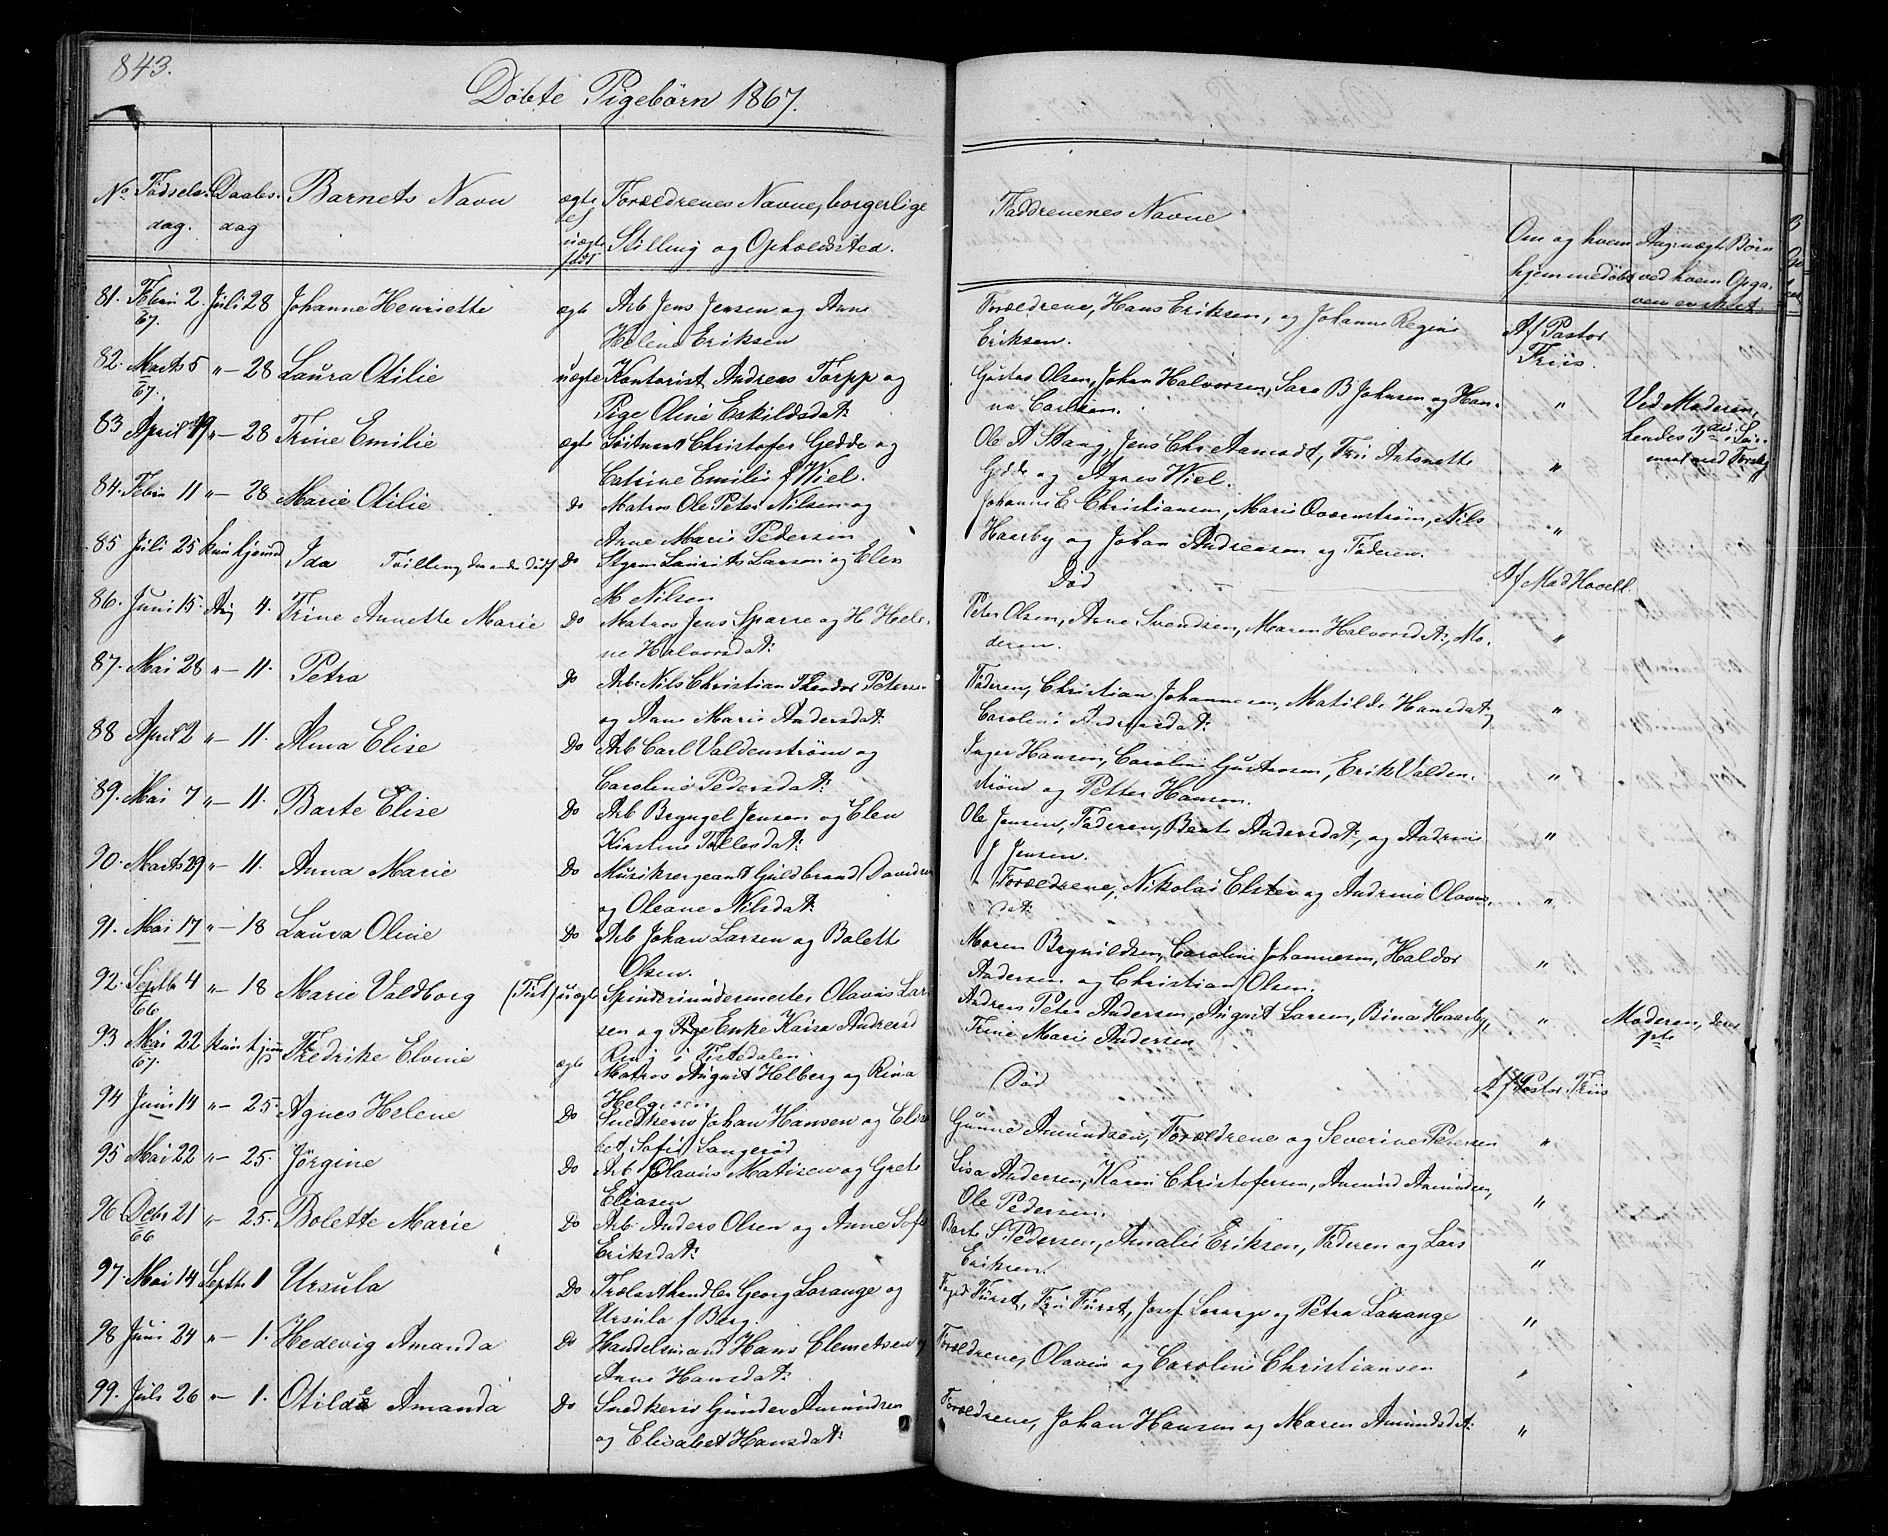 843.
Döbte Pigebörn 1867.
No Födsels- dag. Daabs- dag Barnets Navn ægte el uægte født Forældrenes Navne, borgerlige Stilling og Opholdssted.
Faddrenenes Navne
Om og hvem hjemmedøbt
Ang: uægte Børn ved hvem Opga- ven er skeet.
81. Febru 2. 67. Juli 28 Johanne Henriette ægte Arb Jens Jensen og Anne
Helene Eriksen
Forældrene, Hans Eriksen, og Johanne Regine
Eriksen.
Af Pastor
Friis.
82. Marts 5 67. " – 28 Laura Otilie uægte Kontorist Andreas Torpp og
Pige Oline Eskildsdat:
Gustav Olsen, Johan Halvorsen, Sara B Johnsen og Han-
na Carlsen.
"
Ved Moderen,
hendes 3die
83 April 19 " – 28 Trine Emilie ægte Løitnant Christofer Gedde og
Catrine Emilie f Wiel.
Ole A Stang, Jens Chr Aamodt, Fru Antonette
Gedde og Agnes Wiel.
"
84. Febru 11 " – 28 Marie Otilie do Matros Ole Peter Nilsen og
Anne Marie Pedersen
Johannes E Christiansen, Marie Qvernstrøm, Nils
Haarby og Johan Andreasen og Faderen.
"
85 Juli 25 kun hjemd Ida Tvilling, den anden Dødf Do Styrm Laurits Larson og Elen
M Nilsen
Død
Af Mad Hovell.
86. Juni 15. Aug 4. Trine Annette Marie Do Matros Jens Sparre og H Hele-
ne Halvorsdat:
Peter Olsen, Anne Svendsen, Maren Halvorsdat:, Mo-
deren.
"
87. Mai 28 " – 11. Petra Do Arb: Nils Christian Theodor Petersen
og Anne Marie Andersdat:
Faderen, Christian Johannesen, Matilde Hansdat:
Caroline Andersdat:
"
88 April 2 " – 11. Alma Elise Do Arb Carl Valdenstrøm og
Caroline Pedersdat:
Inger Hansen, Caroline Gustavsen, Erik Valden-
strøm og Petter Hansen.
"
89. Mai 7 " – 11. Barte Elise Do Arb Bryngel Jensen og Elen
Kirstine Tollesdat:
Ole Jensen, Faderen, Beate Andersdat:, og Andreas
J Jensen.
"
90. Marts 29 " – 11. Anna Marie Do Musiksergeant Guldbrand Davidsen
og Oleane Nilsdat:
Forældrene, Nikolai Elster og Andrine Olavs-
dat:
"
91. Mai 17 " – 18 Laura Oline Do Arb Johan Larsen og Bolette
Olsen.
Maren Brynildsen, Caroline Johannesen, Haldor
Andersen og Christian Olsen.
"
92. Septbr 4 66 " – 18 Marie Valdborg (Tist) uægte Spinderiundermester Olavus Lar-
sen og Enke Kaisa Andersd
Ring i Tistedalen.
Andreas Peter Andersen, August Larsen, Bina Haarby,
Trine Marie Andersen
"
Moderen, deres
1ste
93 Mai 22 67. kun hjem Fredrike Elvine ægte Matros August Helberg og Rina
Helgesen
Død
Af Pastor Friis
94 Juni 14 " – 25. Agnes Helene Do Snedkersv Johan Hansen og Elisa-
bet Sofie Langerød
Gunne Amundsen, Forældrene og Severine Petersen
"
95 Mai 22 " – 25. Jörgine Do Arb Olavus Matisen og Grete
Eliasen
Lisa Andersen, Karen Christofersen, Amund Amundsen,
Ole Pedersen.
"
96 Octr 21 66 " – 25. Bolette Marie Do Arb: Anders Olsen og Anne Sofie
Eriksdat:
Barte S Pedersen, Amalie Eriksen, Faderen og Lars
Eriksen.
"
97. Mai 14 Septbr 1 Ursula Do Trælasthandler Georg Lorange og
Ursula f Berg
Foged Fürst, Fru Fürst, Josef Lorange og Petra Lorange
"
98 Juni 24 " – 1. Hedevig Amanda Do Handelsmand Hans Clemetsen og
Anne Hansdat:
Forældrene, Olavus og Caroline Christiansen
"
99. Juli 26 " – 1. Otilde Amanda Do Snedkersv Gunder Amundsen
og Elisabet Hansdat:
Forældrene, Johan Hansen og Maren Amundsdat:
"